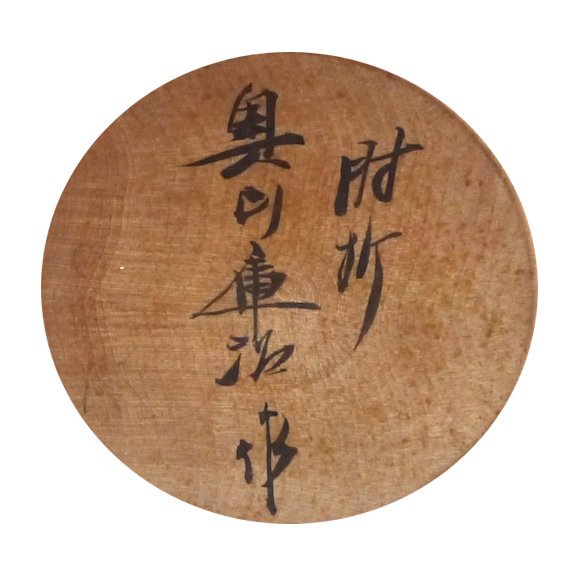 肘折
奥山庫治作